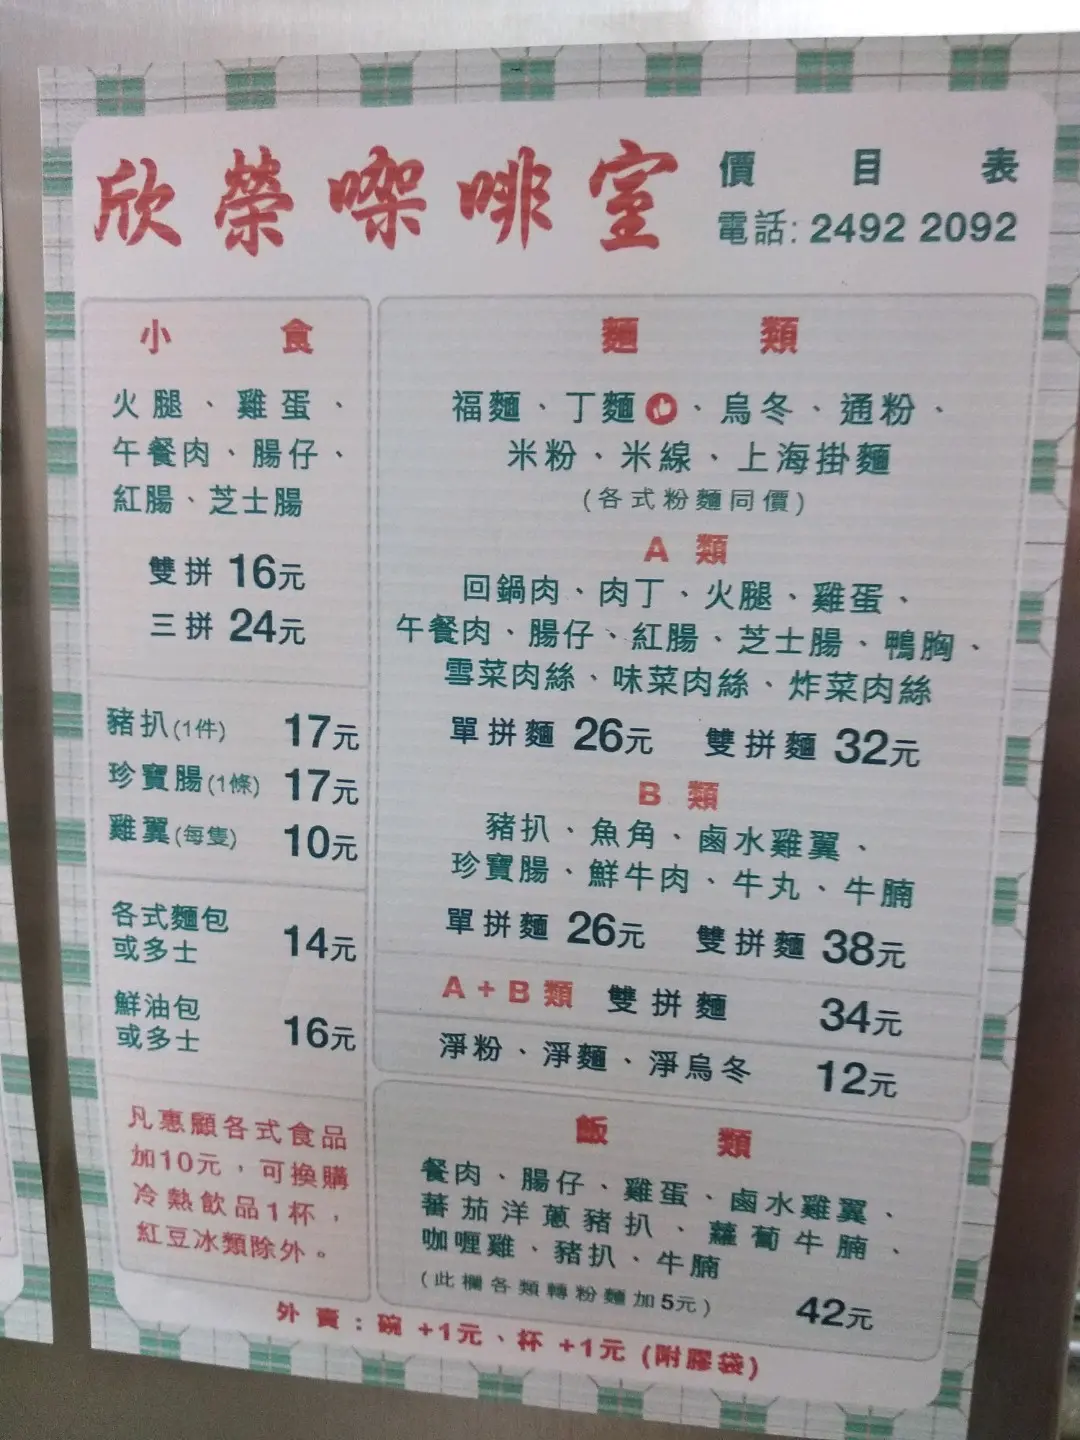 欣榮㗎啡室
價目表
電話: 2492 2092
小食
火腿、雞蛋、
午餐肉、腸仔、
紅腸、芝士腸
雙拼 16元
三拼 24元
豬扒(1件) 17元
珍寶腸(1條) 17元
雞翼(每隻) 10元
各式麵包
或多士 14元
鮮油包
或多士 16元
凡惠顧各式食品
加10元，可換購
冷熱飲品1杯，
紅豆冰類除外。
麵類
福麵、丁麵、烏冬、通粉、
米粉、米線、上海掛麵
(各式粉麵同價)
A 類
回鍋肉、肉丁、火腿、雞蛋、
午餐肉、腸仔、紅腸、芝士腸、鴨胸、
雪菜肉絲、味菜肉絲、炸菜肉絲
單拼麵 26元 雙拼麵 32元
B 類
豬扒、魚角、鹵水雞翼、
珍寶腸、鮮牛肉、牛丸、牛腩
單拼麵 26元 雙拼麵 38元
A+B類 雙拼麵 34元
淨粉、淨麵、淨烏冬 12元
飯類
餐肉、腸仔、雞蛋、鹵水雞翼、
蕃茄洋蔥豬扒、蘿蔔牛腩、
咖喱雞、豬扒、牛腩
(此欄各類轉粉麵加5元) 42元
外賣：碗 +1元、杯 +1元 (附膠袋)